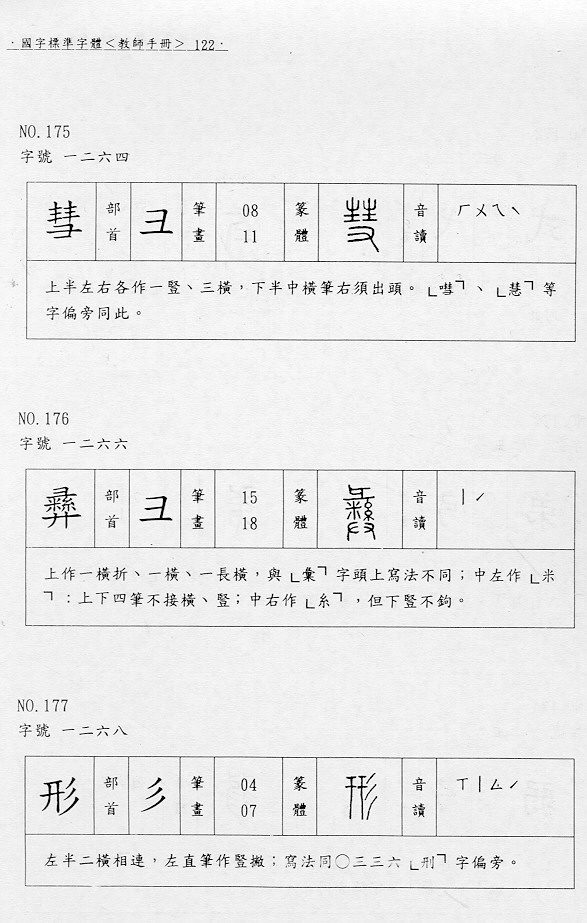 ·國字標準字體＜教師手冊＞ 122·
NO.175
字號 一二六四
彗 部首 彐 筆畫 08 11 篆體 彗 音讀 ㄏㄨㄟˋ
上半左右各作一豎、三橫，下半中橫筆右須出頭。「嘒」、「慧」等
字偏旁同此。
NO.176
字號 一二六六
彝 部首 彐 筆畫 15 18 篆體 彝 音讀 ㄧˊ
上作一橫折、一橫、一長橫，與「彙」字頭上寫法不同；中左作「米
」：上下四筆不接橫、豎；中右作「糸」，但下豎不鉤。
NO.177
字號 一二六八
形 部首 彡 筆畫 04 07 篆體 形 音讀 ㄒㄧㄥˊ
左半二橫相連，左直筆作豎撇；寫法同○三三六「刑」字偏旁。